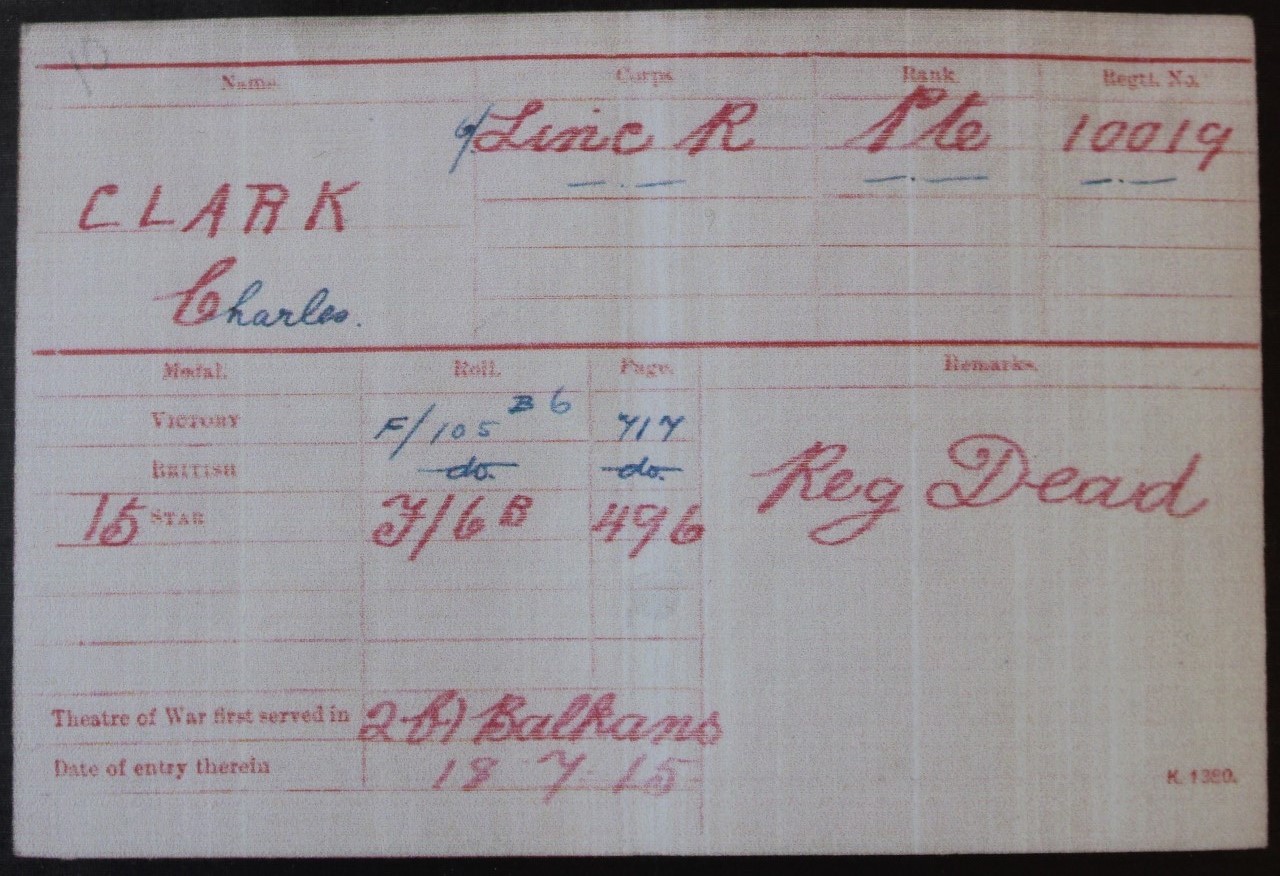 Name. Corps. Rank. Regtl. No.
6/Linc R Pte 10019
CLARK
Charles.
Medal. Roll. Page. Remarks.
VICTORY F/105 B6 717
BRITISH do. do.
15 STAR F/6B 496
Reg Dead
Theatre of War first served in 2b) Balkans
Date of entry therein 18 7. 15
K. 1380.